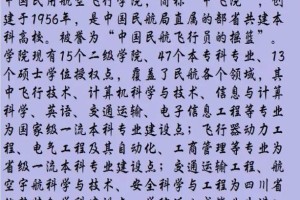 中国民用航空飞行学院，简称“中飞院”，创
建于1956年，是中国民航局直属的部省共建本
科高校。被誉为“中国民航飞行员的摇篮”。
学院现有15个二级学院、47个本专科专业、13
个硕士学位授权点，覆盖了民航各个领域，其
中飞行技术、计算机科学与技术、信息与计算
科学、英语、交通运输、电子信息工程等专业
为国家级一流本科专业建设点；飞行器动力工
程、电气工程及其自动化、工商管理等专业为
省级一流本科专业建设点；交通运输工程、航
空宇航科学与技术、安全科学与工程为四川省